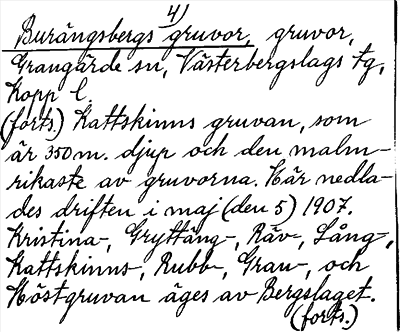 4)
Burängsbergs gruvor, gruvor,
Grangärde sn, Västerbergslags tg,
Kopp l.
(forts.) Kattskinns gruvan, som
är 350 m. djup och den malm-
rikaste av gruvorna. Här nedla-
des driften i maj (den 5) 1907.
Kristina-, Gryttäng-, Räv-, Lång-,
Kattskinns-, Rubb-, Gran-, och
Höstgruvan äges av Bergslaget.
(forts.)